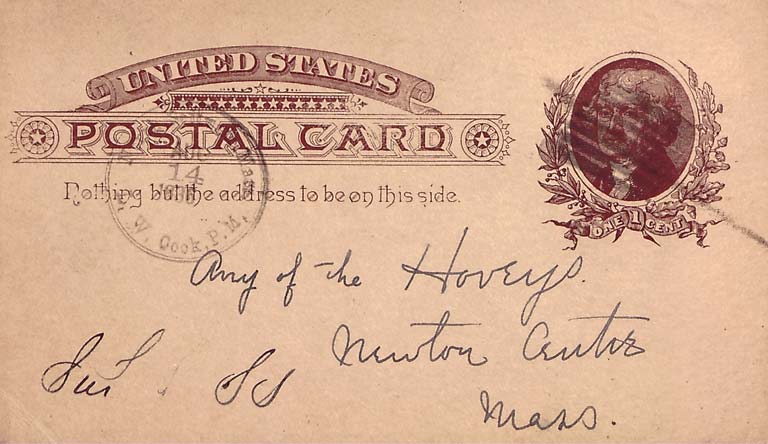 UNITED STATES
POSTAL CARD
Nothing but the address to be on this side.
ONE 1 CENT
14
W. Cook, P.M.
Any of the Hoveys.
Newton Centre
Mass.